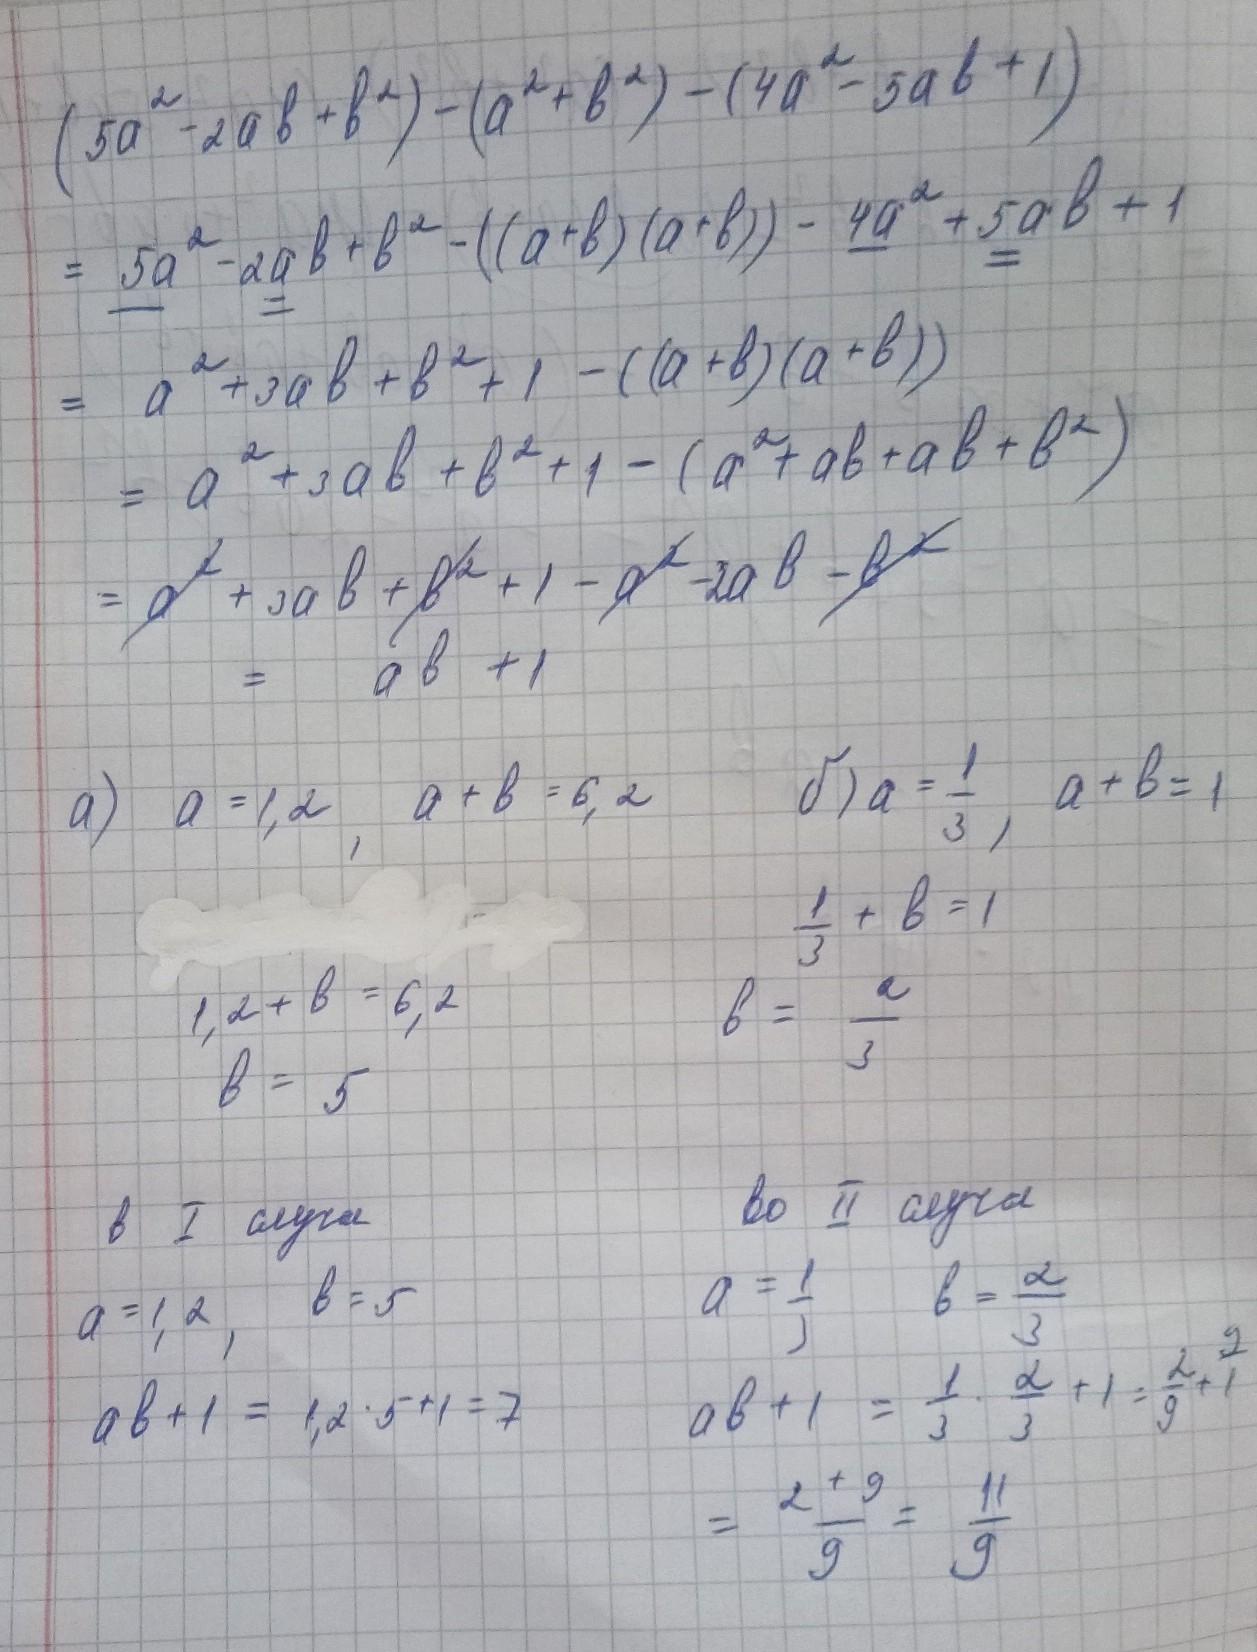 (5a² - 2ab + b²) - (a² + b²) - (4a² - 5ab + 1)
= 5a² - 2ab + b² - ((a+b)(a+b)) - 4a² + 5ab + 1
= a² + 3ab + b² + 1 - ((a+b)(a+b))
= a² + 3ab + b² + 1 - (a² + ab + ab + b²)
= a² + 3ab + b² + 1 - a² - 2ab - b²
= ab + 1
а) a = 1,2, a + b = 6,2
1,2 + b = 6,2
b = 5
б) a = 1/3, a + b = 1
1/3 + b = 1
b = 2/3
в I случа
a = 1,2, b = 5
ab + 1 = 1,2 · 5 + 1 = 7
во II случа
a = 1/3 b = 2/3
ab + 1 = 1/3 · 2/3 + 1 = 2/9 + 1 9
= 2+9/9 = 11/9